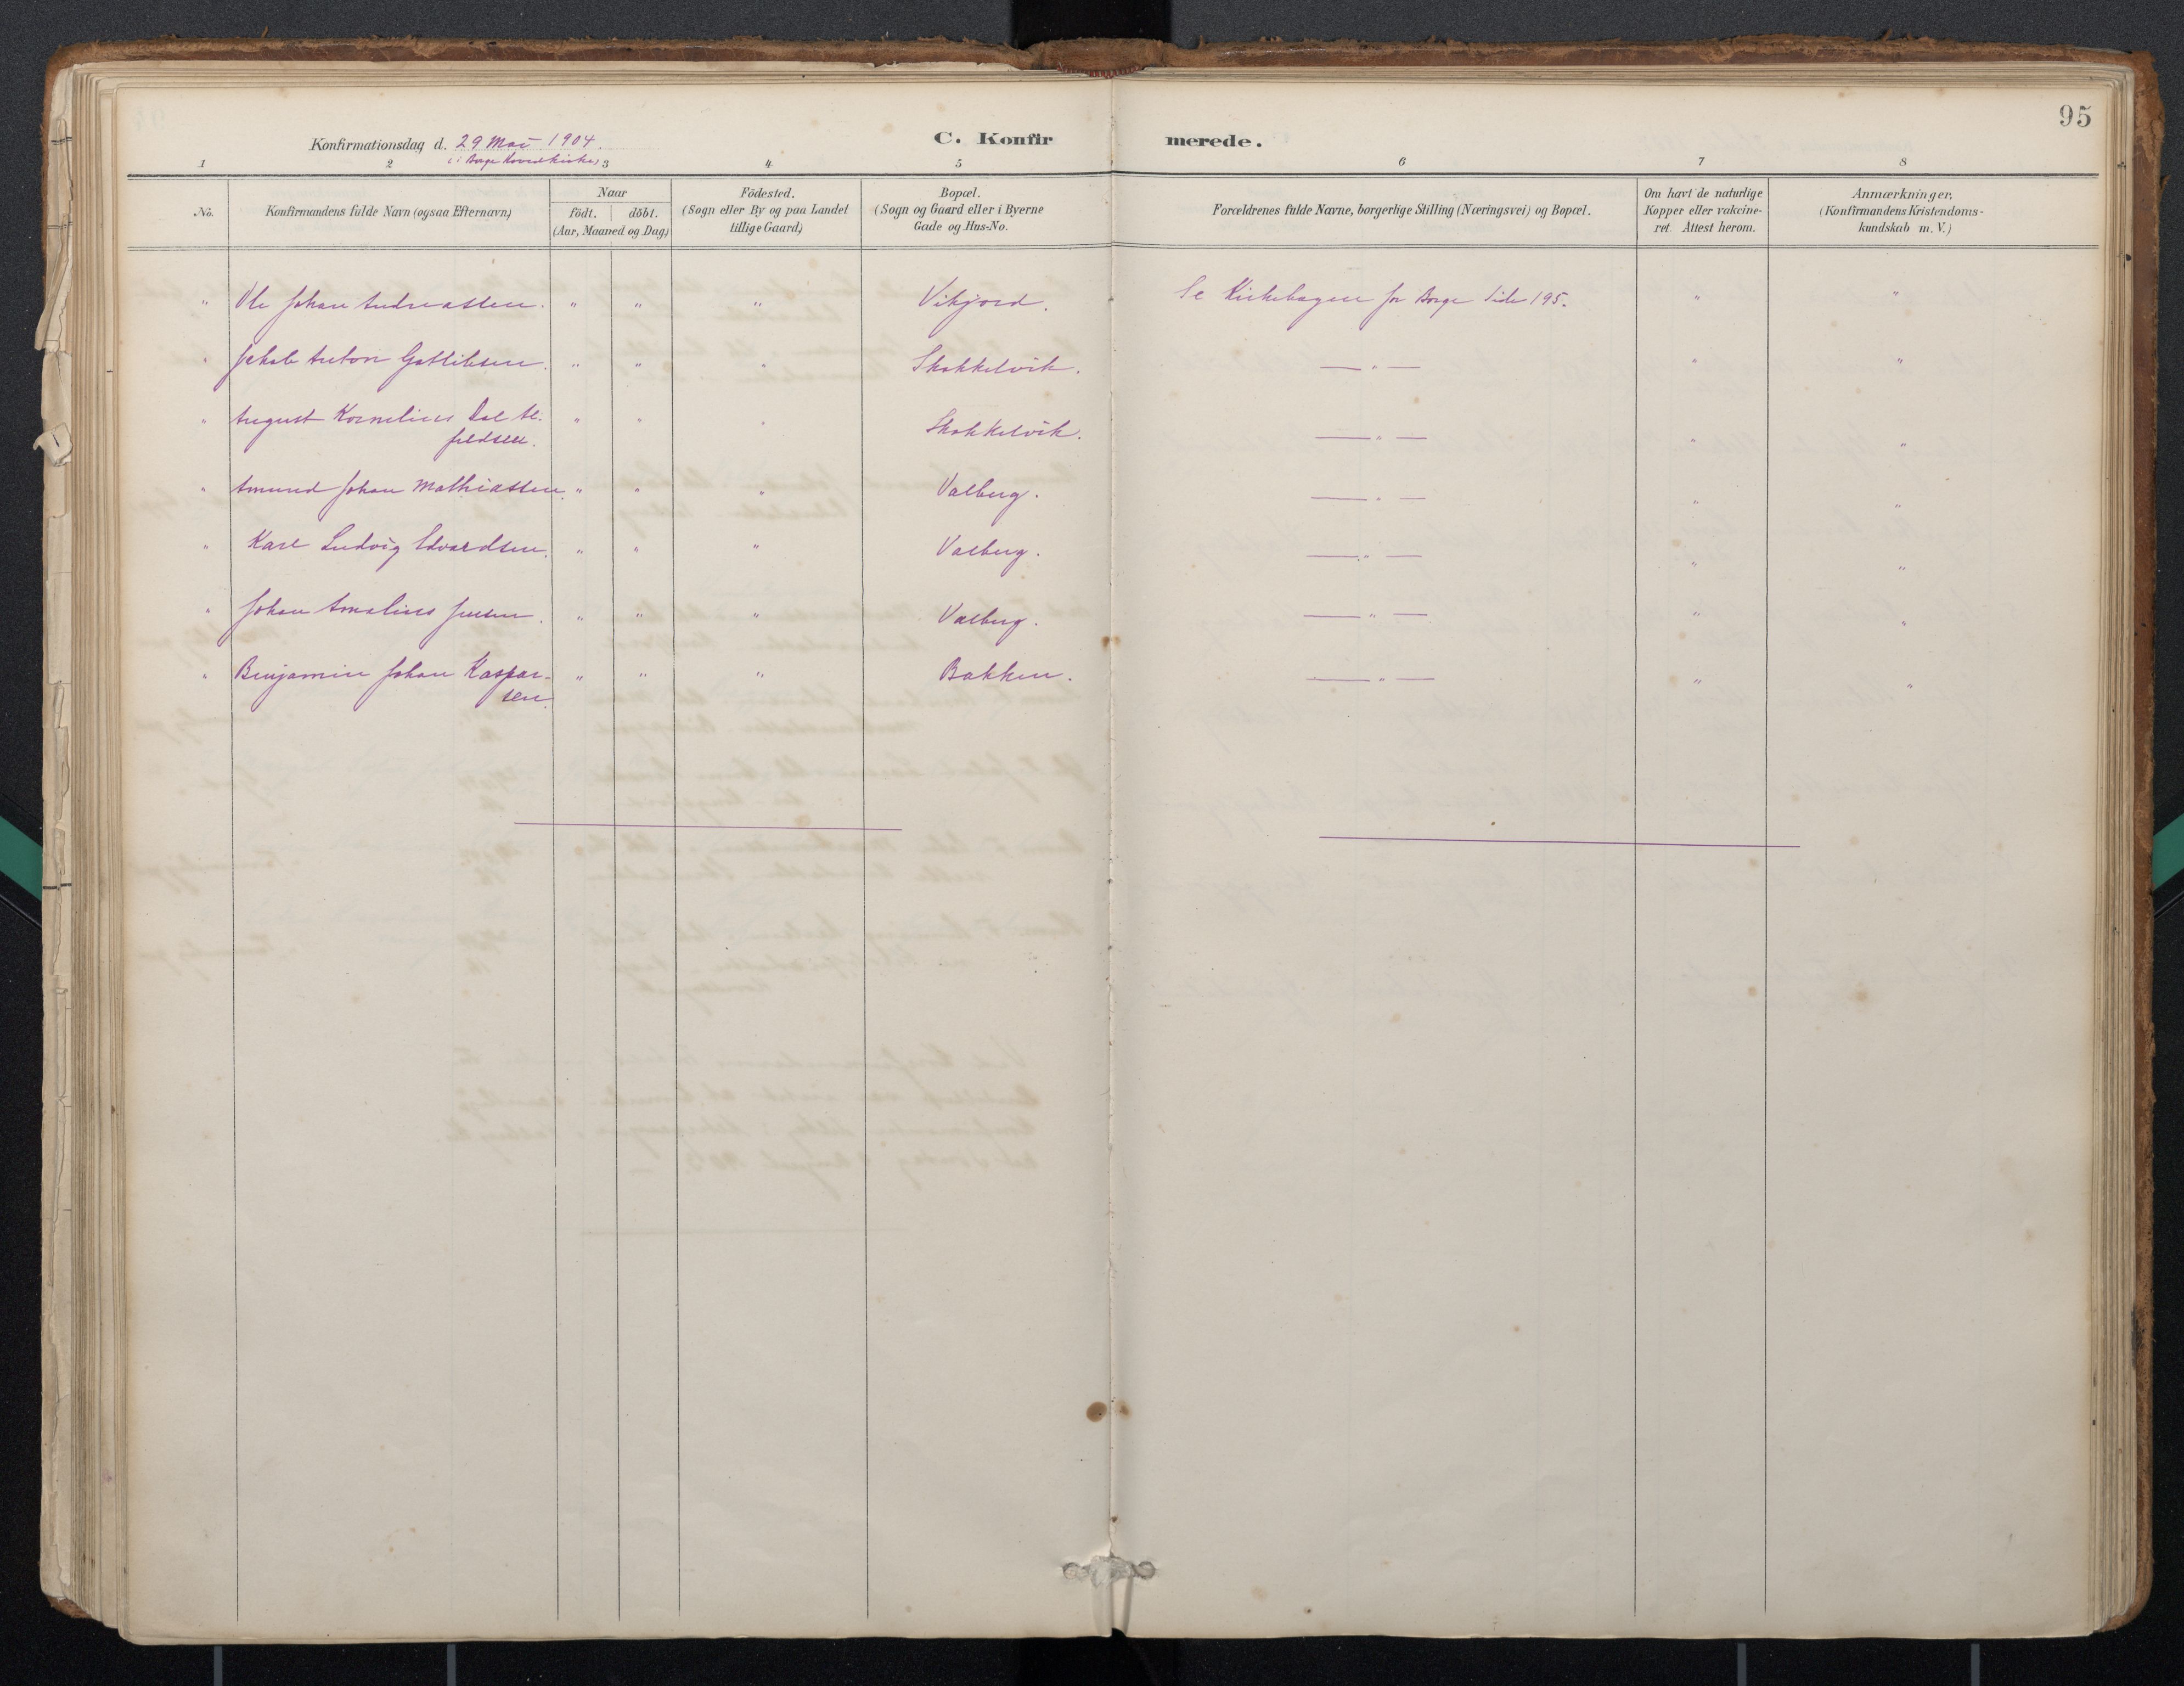 95
Konfirmationsdag d. 29 Mai 1904.
C. Konfirmerede.
(i Borge Hovedkirke)
1 2 3 4 5 6 7 8
No.
Konfirmandens fulde Navn (ogsaa Efternavn)
Naar
födt. döbt.
(Aar, Maaned og Dag)
Födested.
(Sogn eller By og paa Landet
tillige Gaard)
Bopæl.
(Sogn og Gaard eller i Byerne
Gade og Hus-No.
Forældrenes fulde Navne, borgerlige Stilling (Næringsvei) og Bopæl.
Om havt de naturlige
Kopper eller vakcine-
ret. Attest herom.
Anmærkninger,
(Konfirmandens Kristendoms-
kundskab m. V.)
" Ole Johan Andreassen. " " " Vikjord. Se Kirkebogen for Borge Side 195. " "
" Jakob Anton Gottlibsen. " " " Skokkelvik. — " — " "
" August Kornelius Dal Al- " " " Skokkelvik. — " — " "
fildsen.
" Amund Johan Mathiassen. " " " Valberg. — " — " "
" Karl Ludvig Edvardsen. " " " Valberg. — " — " "
" Johan Amalius Jensen. " " " Valberg. — " — " "
" Benjamin Johan Kaspar- " " " Bakken. — " — " "
sen.